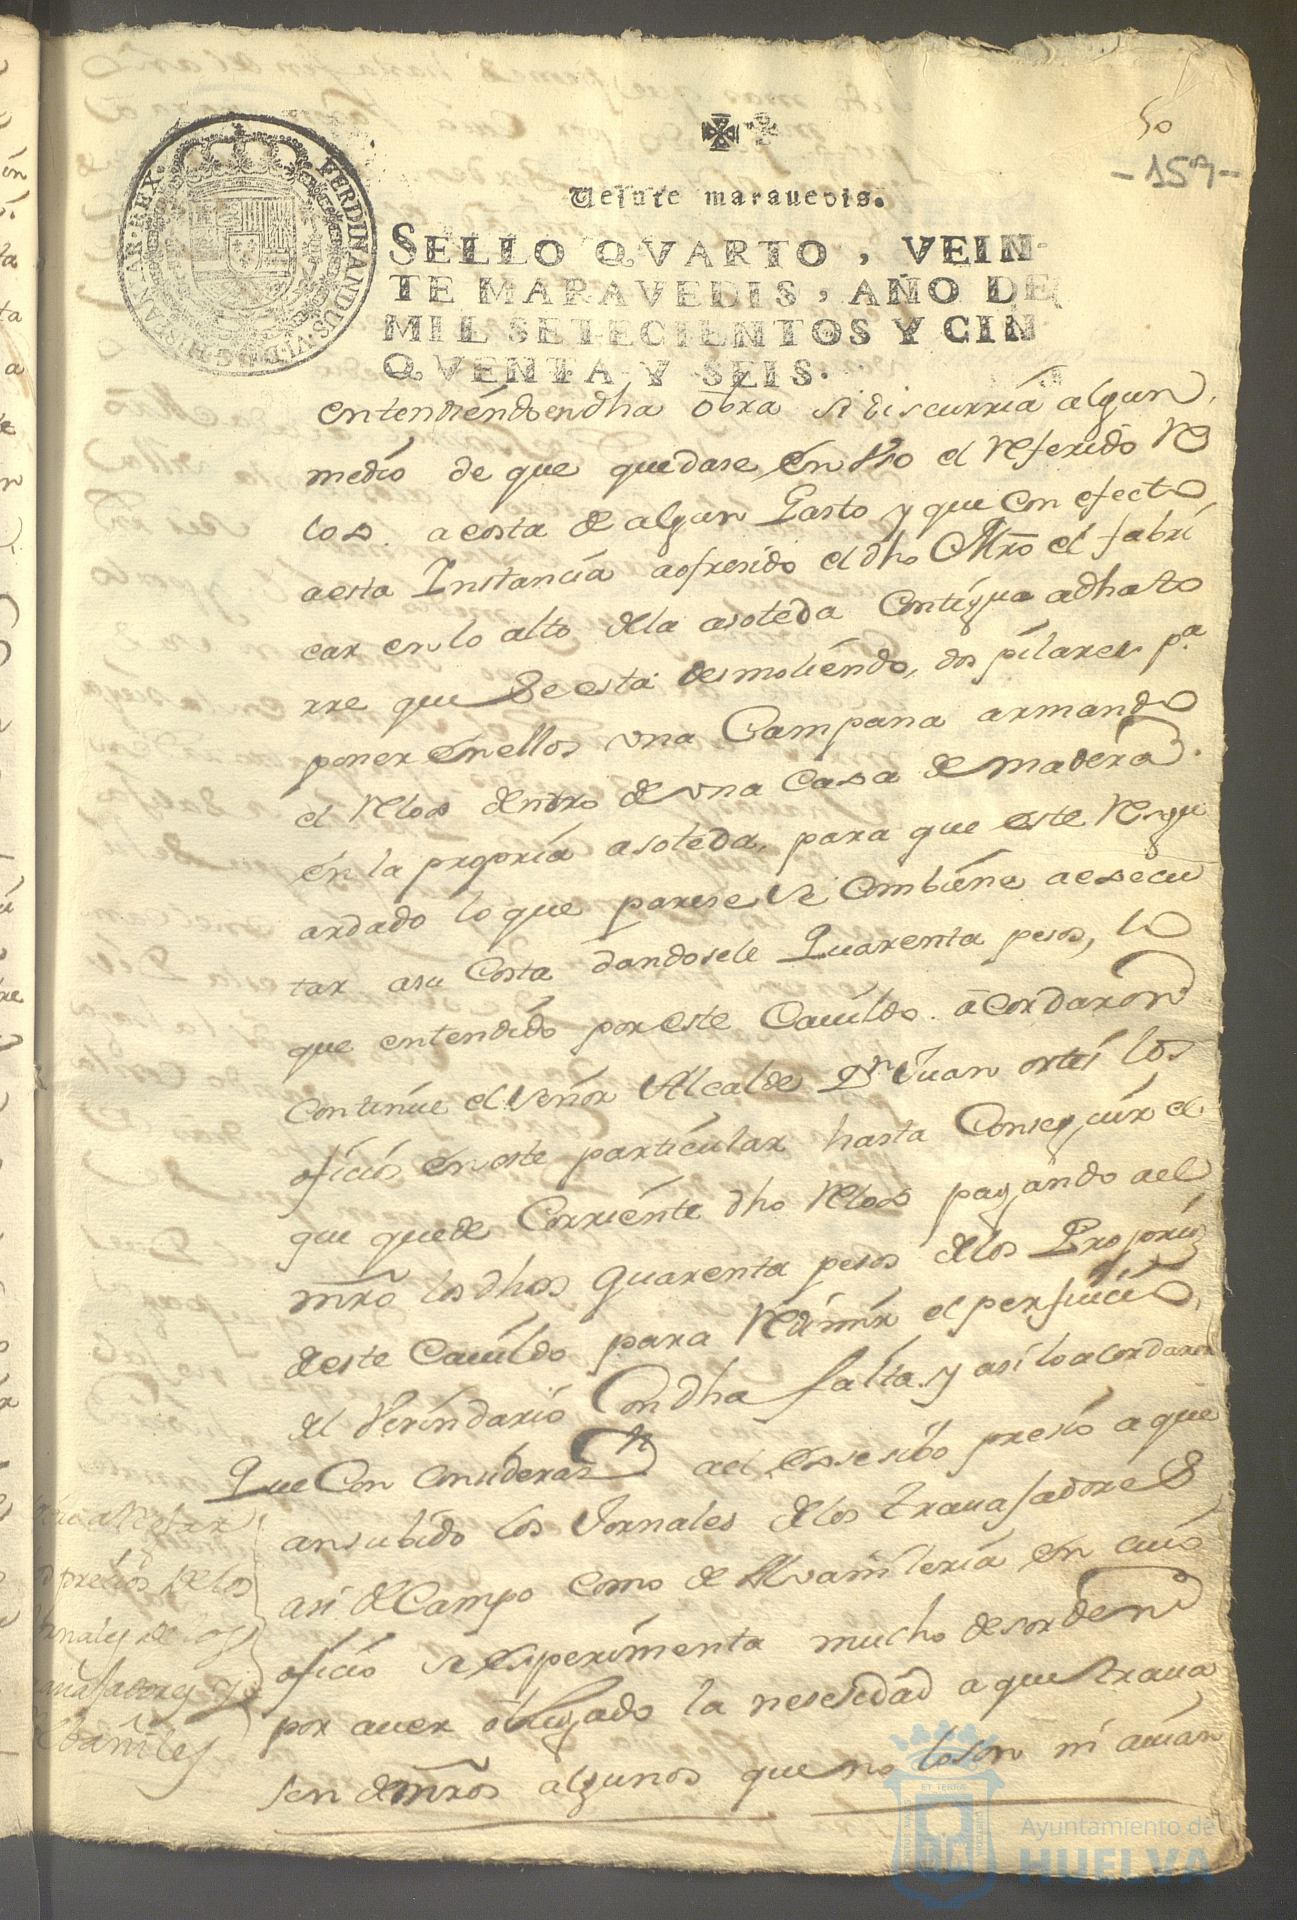 50
-159-
Veinte marauedis.
SELLO QVARTO, VEIN-
TE MARAVEDIS, AÑO DE
MIL SETECIENTOS Y CIN
QVENTA Y SEIS.
FERDINANDUS·VI·D·G·HISPANIAR·REX·
entendiéndo en dha obra si discurria algun
medio de que quedase en Vso el Referido Re
lox a costa de algun Gasto y que con efecto
a esta Instancia a ofresido el dho Mrō el fabri
car en lo alto de la asoteda Contigua a dha to
rre que se esta desmoliendo, dos pilares pa
poner en ellos vna Campana armando
el Relox dentro de vna Caxa de madera
en la propria asoteda, para que este Resgu
ardado lo que parese se Combiene a exsecu
tar a su Costa dandosele Quarenta pesos, lo
que entendido por este Cauildo acordaron
Continue el Señor Alcalde Dn Juan ortis los
oficios en este particular hasta Conseguir el
que quede Corriente dho Relox pagando a el
mrō los dhos quarenta pesos de los Proprios
deste Cauildo para Redimir el perjuicio
del Vesindario Con dha falta y asi lo acordaron
Que Con Considerasn a el exsesibo presio a que
an subido los Jornales de los trauajadores
asi de Campo como de Alvanileria en cuio
oficio se experimenta mucho desorden
por auer obligado la nesesidad a que traua
jen de mrōs algunos que no lo son ni auian
presios de los
Jornales de los
trauajadores y
Albañiles
Ayuntamiento de
HUELVA